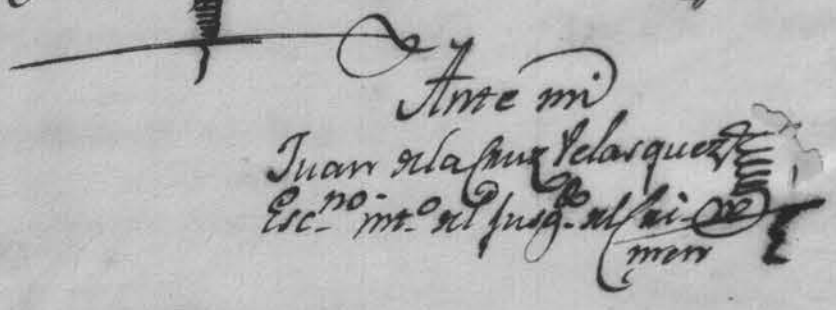 Ante mi
Juan dela Cruz Velasquez
Esc.no int.o del Jusg.do del Cri-
men